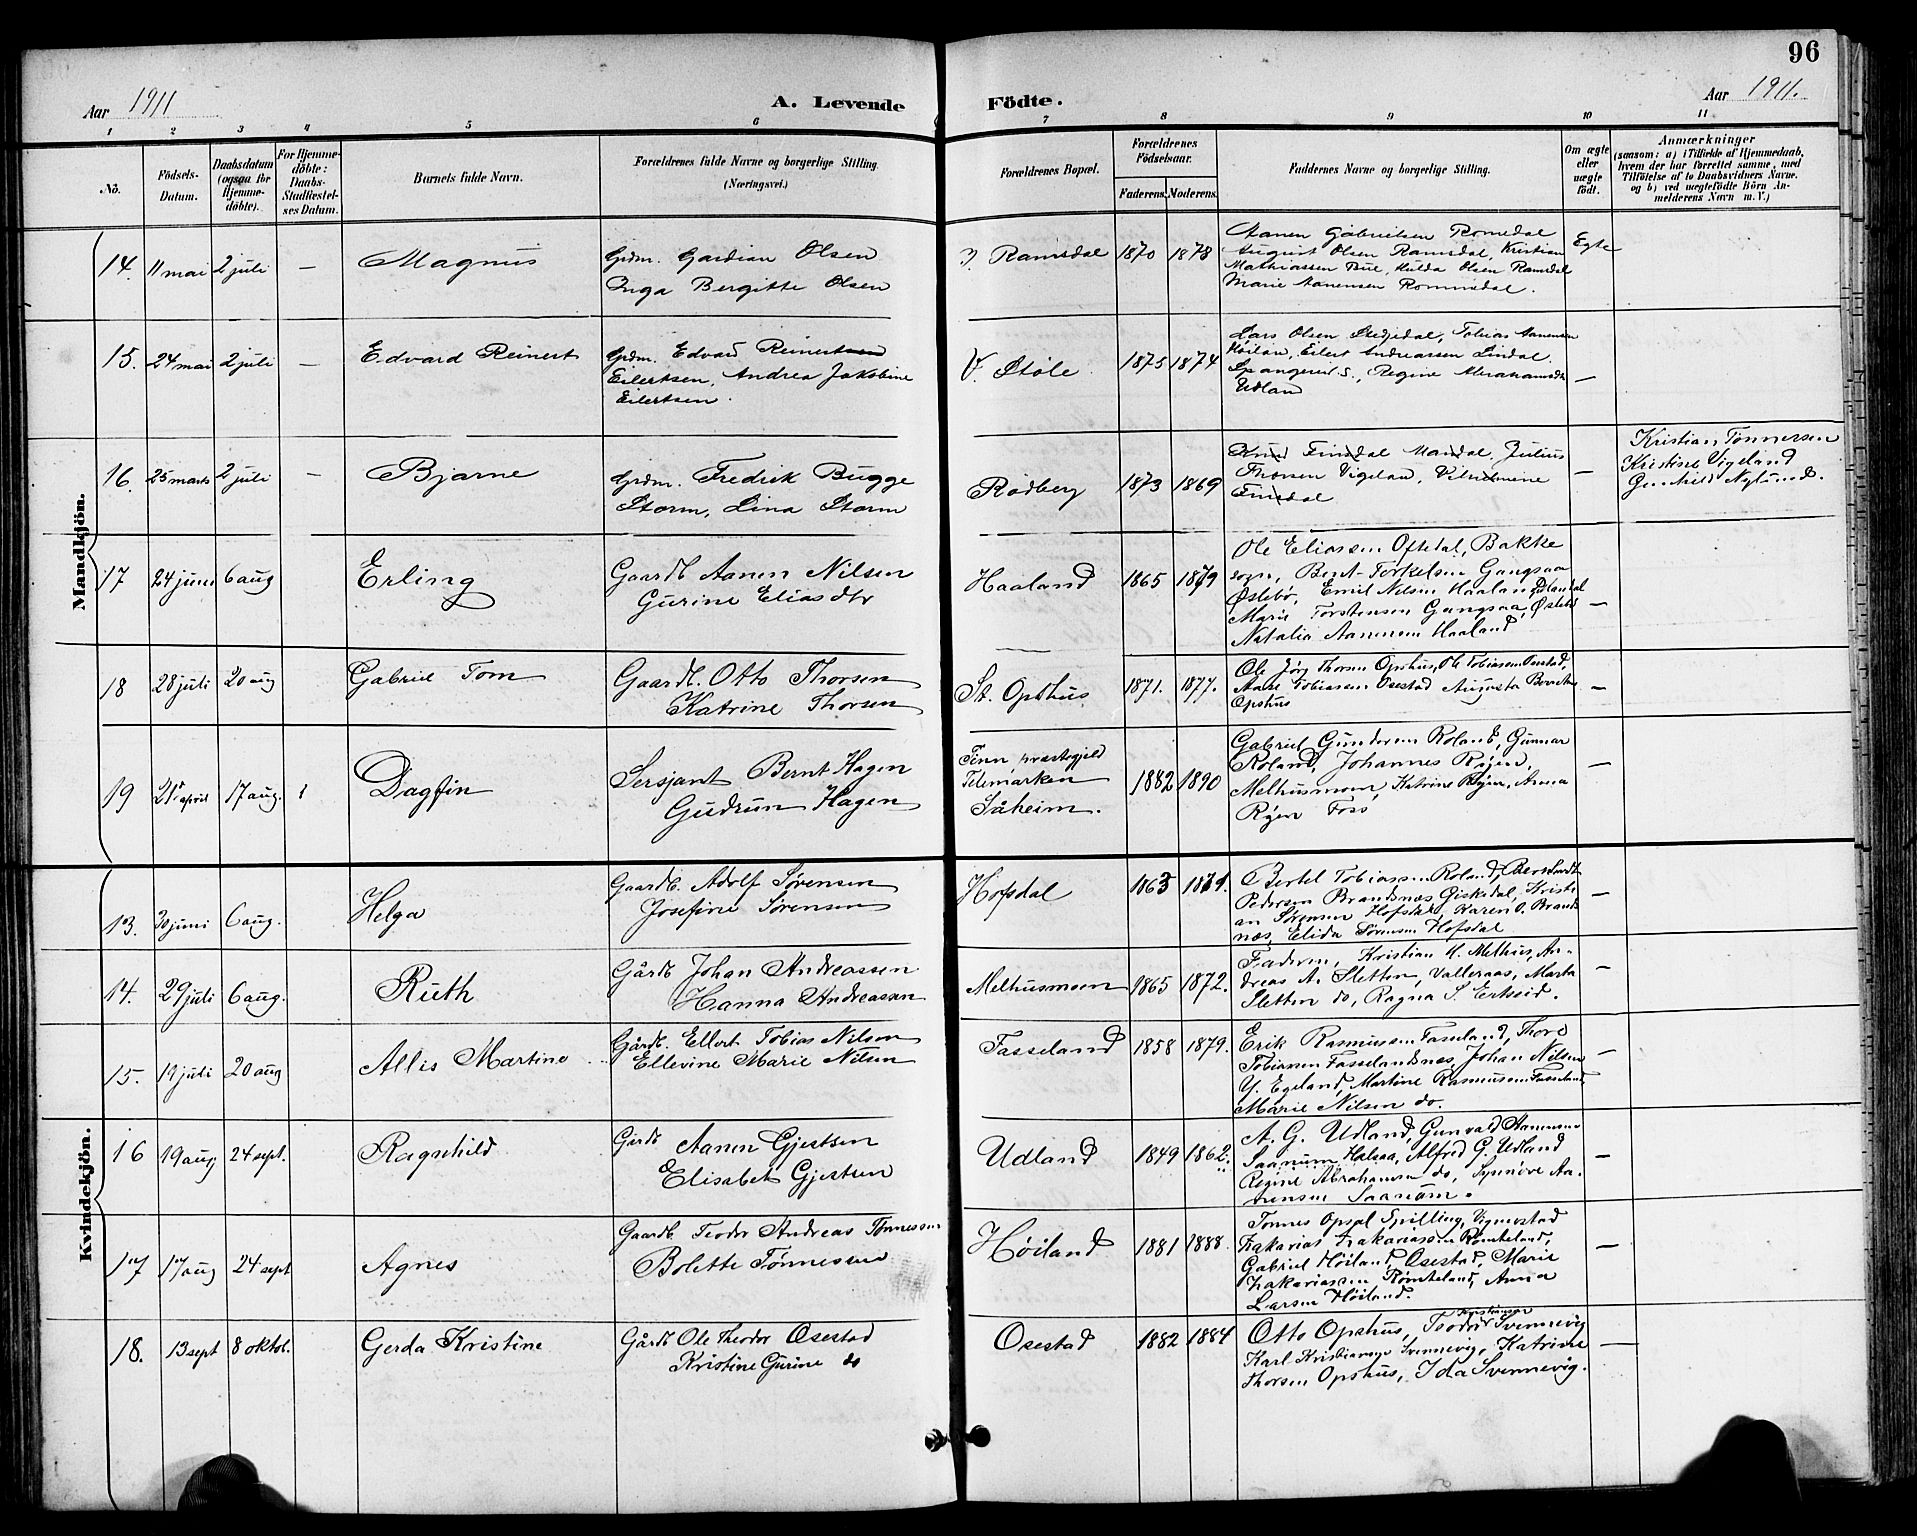 96
Aar 1911
A. Levende Födte.
Aar 1911.
1 2 3 4 5 6 7 8 9 10 11
No.
Födsels-Datum.
Daabsdatum (ogsaa for Hjemme-döbte).
For Hjemme-döbte: Daabs-Stadfæstel-ses Datum.
Barnets fulde Navn.
Forældrenes fulde Navne og borgerlige Stilling.
(Næringsvei.)
Forældrenes Bopæl.
Forældrenes Födselsaar.
Faderens. Moderens.
Faddernes Navne og borgerlige Stilling.
Om ægte eller uægte födt.
Anmærkninger
(saasom: a) i Tilfælde af Hjemmedaab,
hvem der har forrettet samme, med
Tilföielse af to Daabsvidners Navne,
og b) ved uægtefödte Börn An-
melderens Navn m. V.)
Mandkjön.
14. 11 mai 2 juli — Magnus
Grdm. Gardian Olsen
Inga Bergitte Olsen
Y. Ramsdal 1870 1878
Aanen Gabrielsen Romedal
August Olsen Ramsdal, Kristian
Mathiassen Bue, Hulda Olsen Ramsdal
Marie Aanensen Romsdal.
Egte
15. 24 mai 2 juli — Edvard Reinert
Grdm. Edvard Reinertsen
Eilertsen, Andrea Jakobine
Eilertsen.
V. Støle 1875 1874
Lars Olsen Stedjedal, Tobias Aanensen
Høiland, Eilert Andreassen Lindal
Spangereid S., Regine Abrahamsdtr
Udland
—
16. 25 marts 2 juli — Bjarne
Grdm. Fredrik Bugge
Storm, Lina Storm
Rødberg 1873 1869
Knud Finsdal Mandal, Julius
Thorsen Vigeland,
Finsdal
—
Kristian Tønnersen
Kristine Vigeland
Gunhild Nylund.
17 24 juni 6 aug Erling
Gaardb Aanen Nilsen
Gurine Eliasdtr
Haaland 1865 1879
Ole Eliassen Oftedal, Bakke
sogn, Bent Torkelsen Gangsaa
Øslebø, Emil Nilsen Haaland
Marie Torstensen Gangsaa, Øslebø
Natalia Aanensen Haaland
—
18 28 juli 20 aug Gabriel Tom
Gaardb. Otto Thorsen
Katrine Thorsen
St. Opshus 1871. 1877.
Ole Jørg Thorsen Opshus, Ole Tobiassen
Aase Tobiassen Osestad Augusta
Opshus
—
19 21 april 17 aug. 1 Dagfin
Sersjant Bernt Hagen
Gudrun Hagen
Tinn præstegjeld
Telemarken
Såheim.
1882 1890
Gabriel Gundersen Roland, Gunnar
Roland, Johannes Røjen,
Melhusmoen, Katrine Røjen, Anna
Røjen Foss
—
Kvindekjön.
13. 30 juni 6 aug. Helga
Gaardb. Adolf Sørensen
Josefine Sørensen
Hofsdal 1863 1871.
Bertel Tobiassen Roland, Bernhardt
Pedersen Brandsnæs Giskedal, Kristi
an Sørensen Hofsdal, Karen O. Brands
næs, Elida Sørensen Hofsdal
—
14. 29 juli 6 aug. Ruth
Gårdb Johan Andreassen
Hanna Andreassen
Melhusmoen 1865 1872.
Faderen, Kristian M. Melhus, An-
dreas A. Sletten, Valleraas, Marta
Sletten do, Ragna S. Erkseid.
—
15. 19 juli 20 aug Allis Martine
Gårdb. Ellert Tobias Nilsen
Ellevine Marie Nilsen
Fasseland 1858 1879.
Erik Rasmussen Fasseland, Thore
Tobiassen Fasselandsnæs, Johan Nilsen
Y. Egeland, Martine Rasmussen Fasseland
Marie Nilsen do.
—
16 19 aug 24 sept. Ragnhild
Gårdb Aanen Gjertsen
Elisabet Gjertsen
Udland 1849 1862.
A. G. Udland, Gunvald Aanensen
Saanum Halsaa, Alfred G. Udland
Regine Abrahamsen do, Synnøve Aa-
nensen Saanum.
—
17 17 aug 24 sept Agnes
Gaardb Teodor Andreas Tønnessen
Bolette Tønnessen
Høiland 1881 1888.
Tønnes Opsal Spilling, Vigmostad
Zakarias Zakariassen Rømteland,
Gabriel Høiland, Osestad, Marie
Zakariassen Rømteland, Anna
Larsen Høiland.
—
18. 13 sept 8 oktob. Gerda Kristine
Gårdb Ole Theodor Osestad
Kristine Gurine do
Osestad 1882 1884
Otto Opshus, Teodor Kristiansen Svennevig
Karl Kristiansen Svennevig, Katrine
Thorsen Opshus, Ida Svennevig.
—